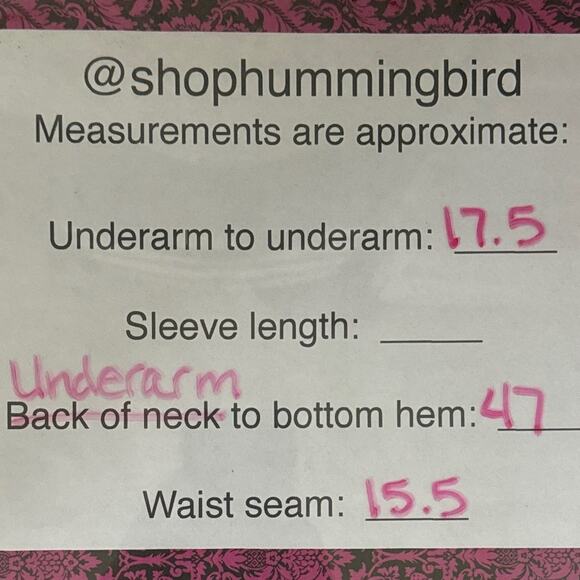 @shophummingbird
Measurements are approximate:
Underarm to underarm: 17.5
Sleeve length: ____
Underarm
Back of neck to bottom hem: 47
Waist seam: 15.5